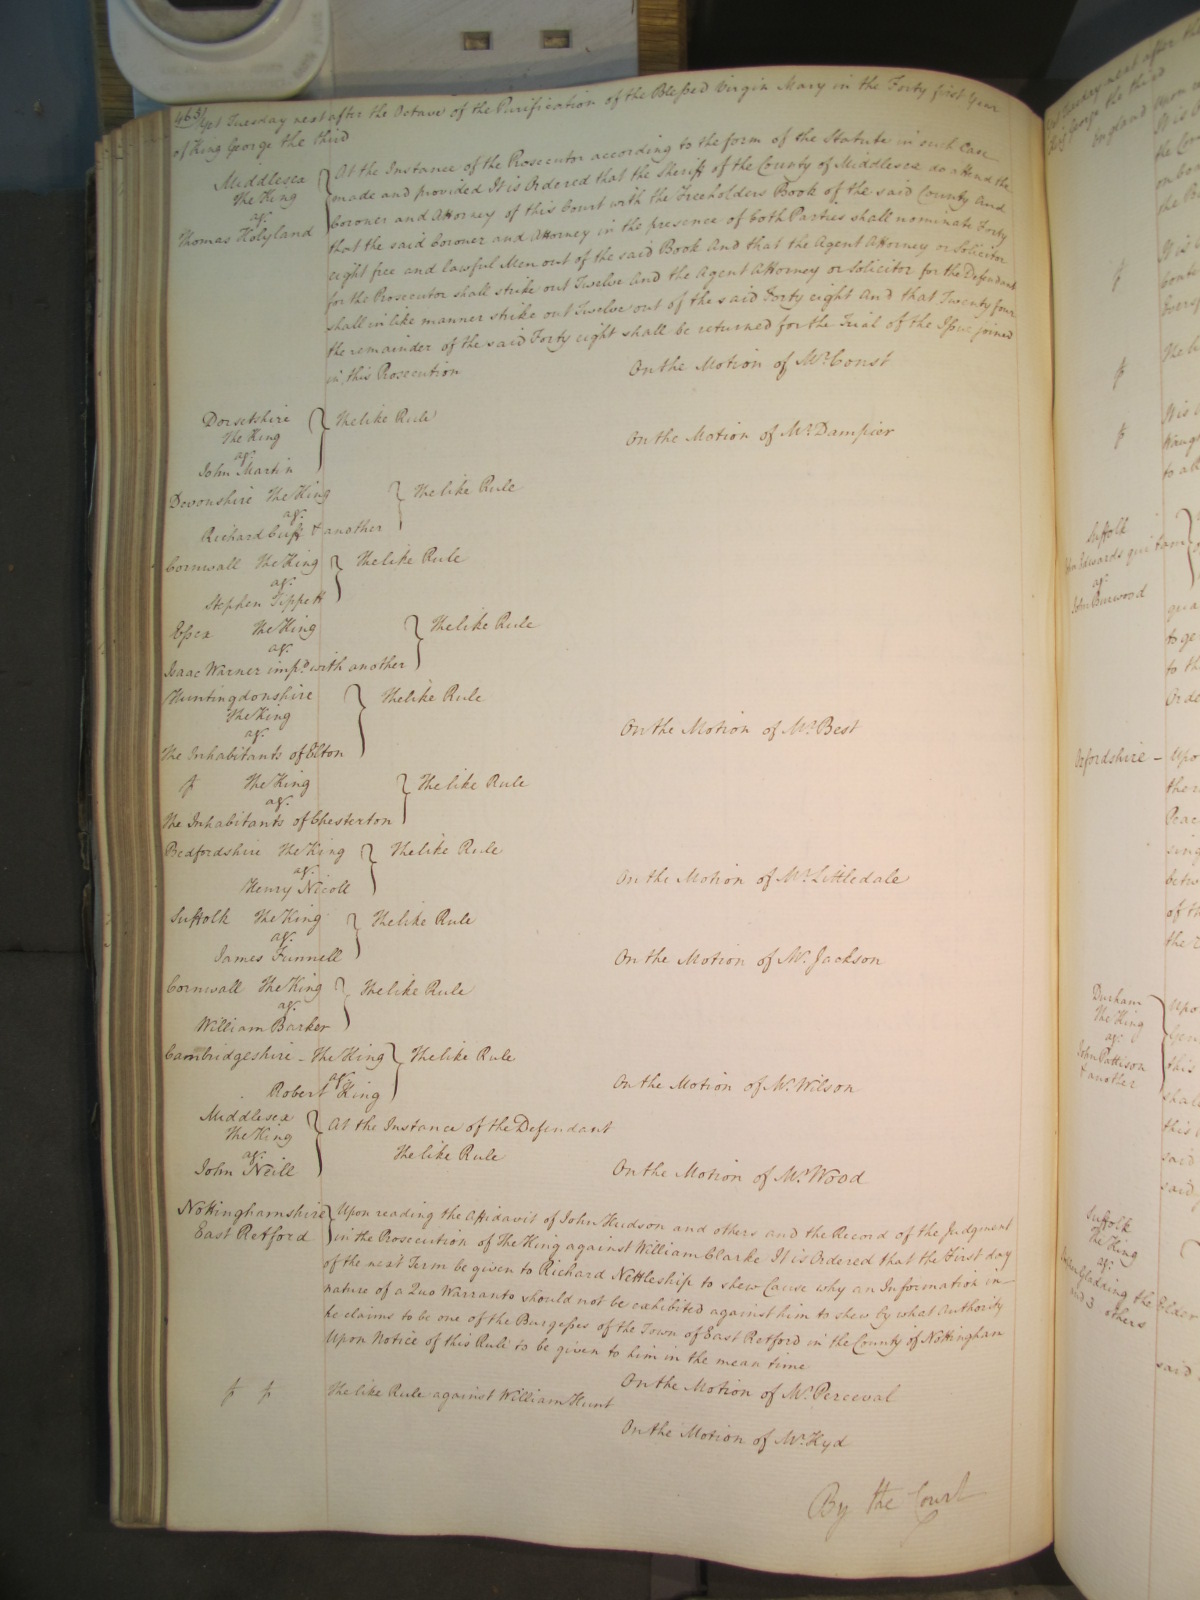 463 Yet Tuesday next after the Octave of the Purification of the Blessed Virgin Mary in the Forty first Year
of King George the third
Middlesex
The King
agt
Thomas Holyland
At the Instance of the Prosecutor according to the form of the Statute in such Case
made and provided It is Ordered that the Sheriff of the County of Middlesex do attend the
Coroner and Attorney of this Court with the Freeholders Book of the said County And
that the said Coroner and Attorney in the presence of both Parties shall nominate Forty
eight free and lawful Men out of the said Book And that the Agent Attorney or Solicitor
for the Prosecutor shall strike out Twelve And the Agent Attorney or Solicitor for the Defendant
shall in like manner strike out Twelve out of the said Forty eight And that Twenty four
the remainder of the said Forty eight shall be returned for the Trial of the Issue joined
in this Prosecution
On the Motion of Mr Const
Dorsetshire
The King
agt
John Martin
The like Rule
On the Motion of Mr Dampier
Devonshire The King
agt
Richard Cuff & another
The like Rule
Cornwall The King
agt
Stephen Tippett
The like Rule
Essex The King
agt
Isaac Warner impd with another
The like Rule
Huntingdonshire
The King
agt
The Inhabitants of Elton
The like Rule
On the Motion of Mr Best
The King
agt
The Inhabitants of Chesterton
The like Rule
Bedfordshire The King
agt
Henry Nicoll
The like Rule
On the Motion of Mr Littledale
Suffolk The King
agt
James Funnell
The like Rule
On the Motion of Mr Jackson
Cornwall The King
agt
William Barker
The like Rule
Cambridgeshire - The King
agt
Robert King
The like Rule
On the Motion of Mr Wilson
Middlesex
The King
agt
John Neill
At the Instance of the Defendant
The like Rule
On the Motion of Mr Wood
Nottinghamshire
East Retford
Upon reading the Affidavit of John Hudson and others and the Record of the Judgment
in the Prosecution of The King against William Clarke It is Ordered that the First day
of the next Term be given to Richard Nettleship to shew Cause why an Information in
nature of a Quo Warranto should not be exhibited against him to shew by what Authority
he claims to be one of the Burgesses of the Town of East Retford in the County of Nottingham
Upon Notice of this Rule to be given to him in the mean time
On the Motion of Mr Perceval
The like Rule against William Hunt
On the Motion of Mr Kyd
By the Court
Suffolk
Edwards qui tam
agt
John Burwood
Oxfordshire - Upo
Durham
The King
agt
John Pattison
& another
Suffolk
The King
agt
the Elder
and 3 others